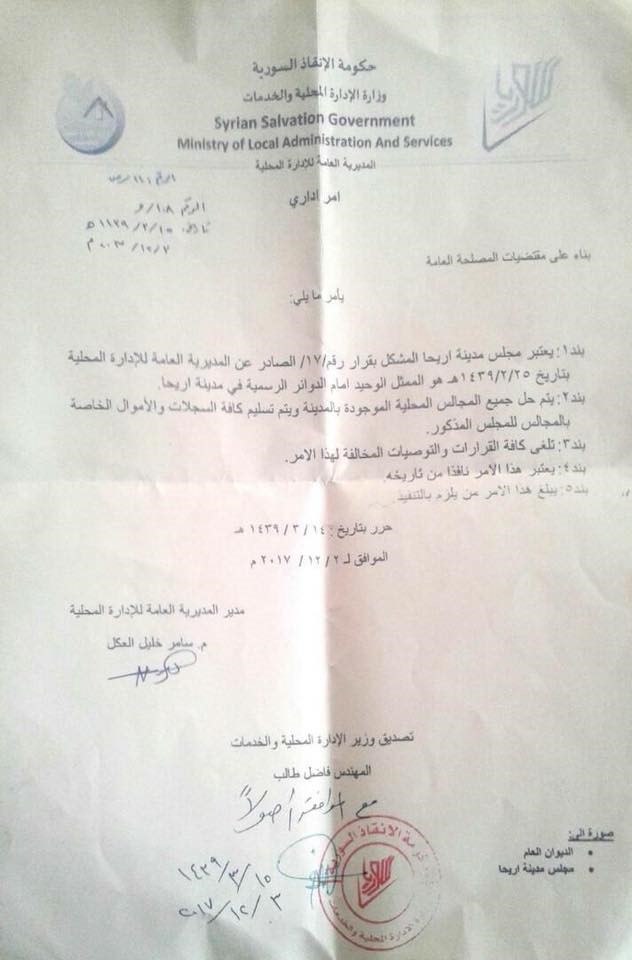 حكومة الإنقاذ السورية
وزارة الإدارة المحلية والخدمات
Syrian Salvation Government
Ministry of Local Administration And Services
المديرية العامة للإدارة المحلية
امر اداري
بناء على مقتضيات المصلحة العامة
يأمر ما يلي:
بند١: يعتبر مجلس مدينة اريحا المشكل بقرار رقم/١٧/ الصادر عن المديرية العامة للإدارة المحلية
بتاريخ ١٤٣٩/٢/٢٥هـ هو الممثل الوحيد امام الدوائر الرسمية في مدينة اريحا.
بند٢: يتم حل جميع المجالس المحلية الموجودة بالمدينة ويتم تسليم كافة السجلات والأموال الخاصة
بالمجالس للمجلس المذكور.
بند٣: تلغى كافة القرارات والتوصيات المخالفة لهذا الامر.
بند٤: يعتبر هذا الامر نافذا من تاريخه.
بند٥: يبلغ هذا الامر من يلزم بالتنفيذ
حرر بتاريخ: ١٤ / ٣ / ١٤٣٩ هـ
الموافق لـ ٢ / ١٢ / ٢٠١٧ م
مدير المديرية العامة للإدارة المحلية
م. سامر خليل العكل
تصديق وزير الإدارة المحلية والخدمات
المهندس فاضل طالب
مع الموافقة أصولاً
١٤٣٩/٣/١٥
٢٠١٧/١٢/٣
صورة الى:
• الديوان العام
• مجلس مدينة اريحا
حكومة الانقاذ السورية
وزارة الادارة المحلية والخدمات